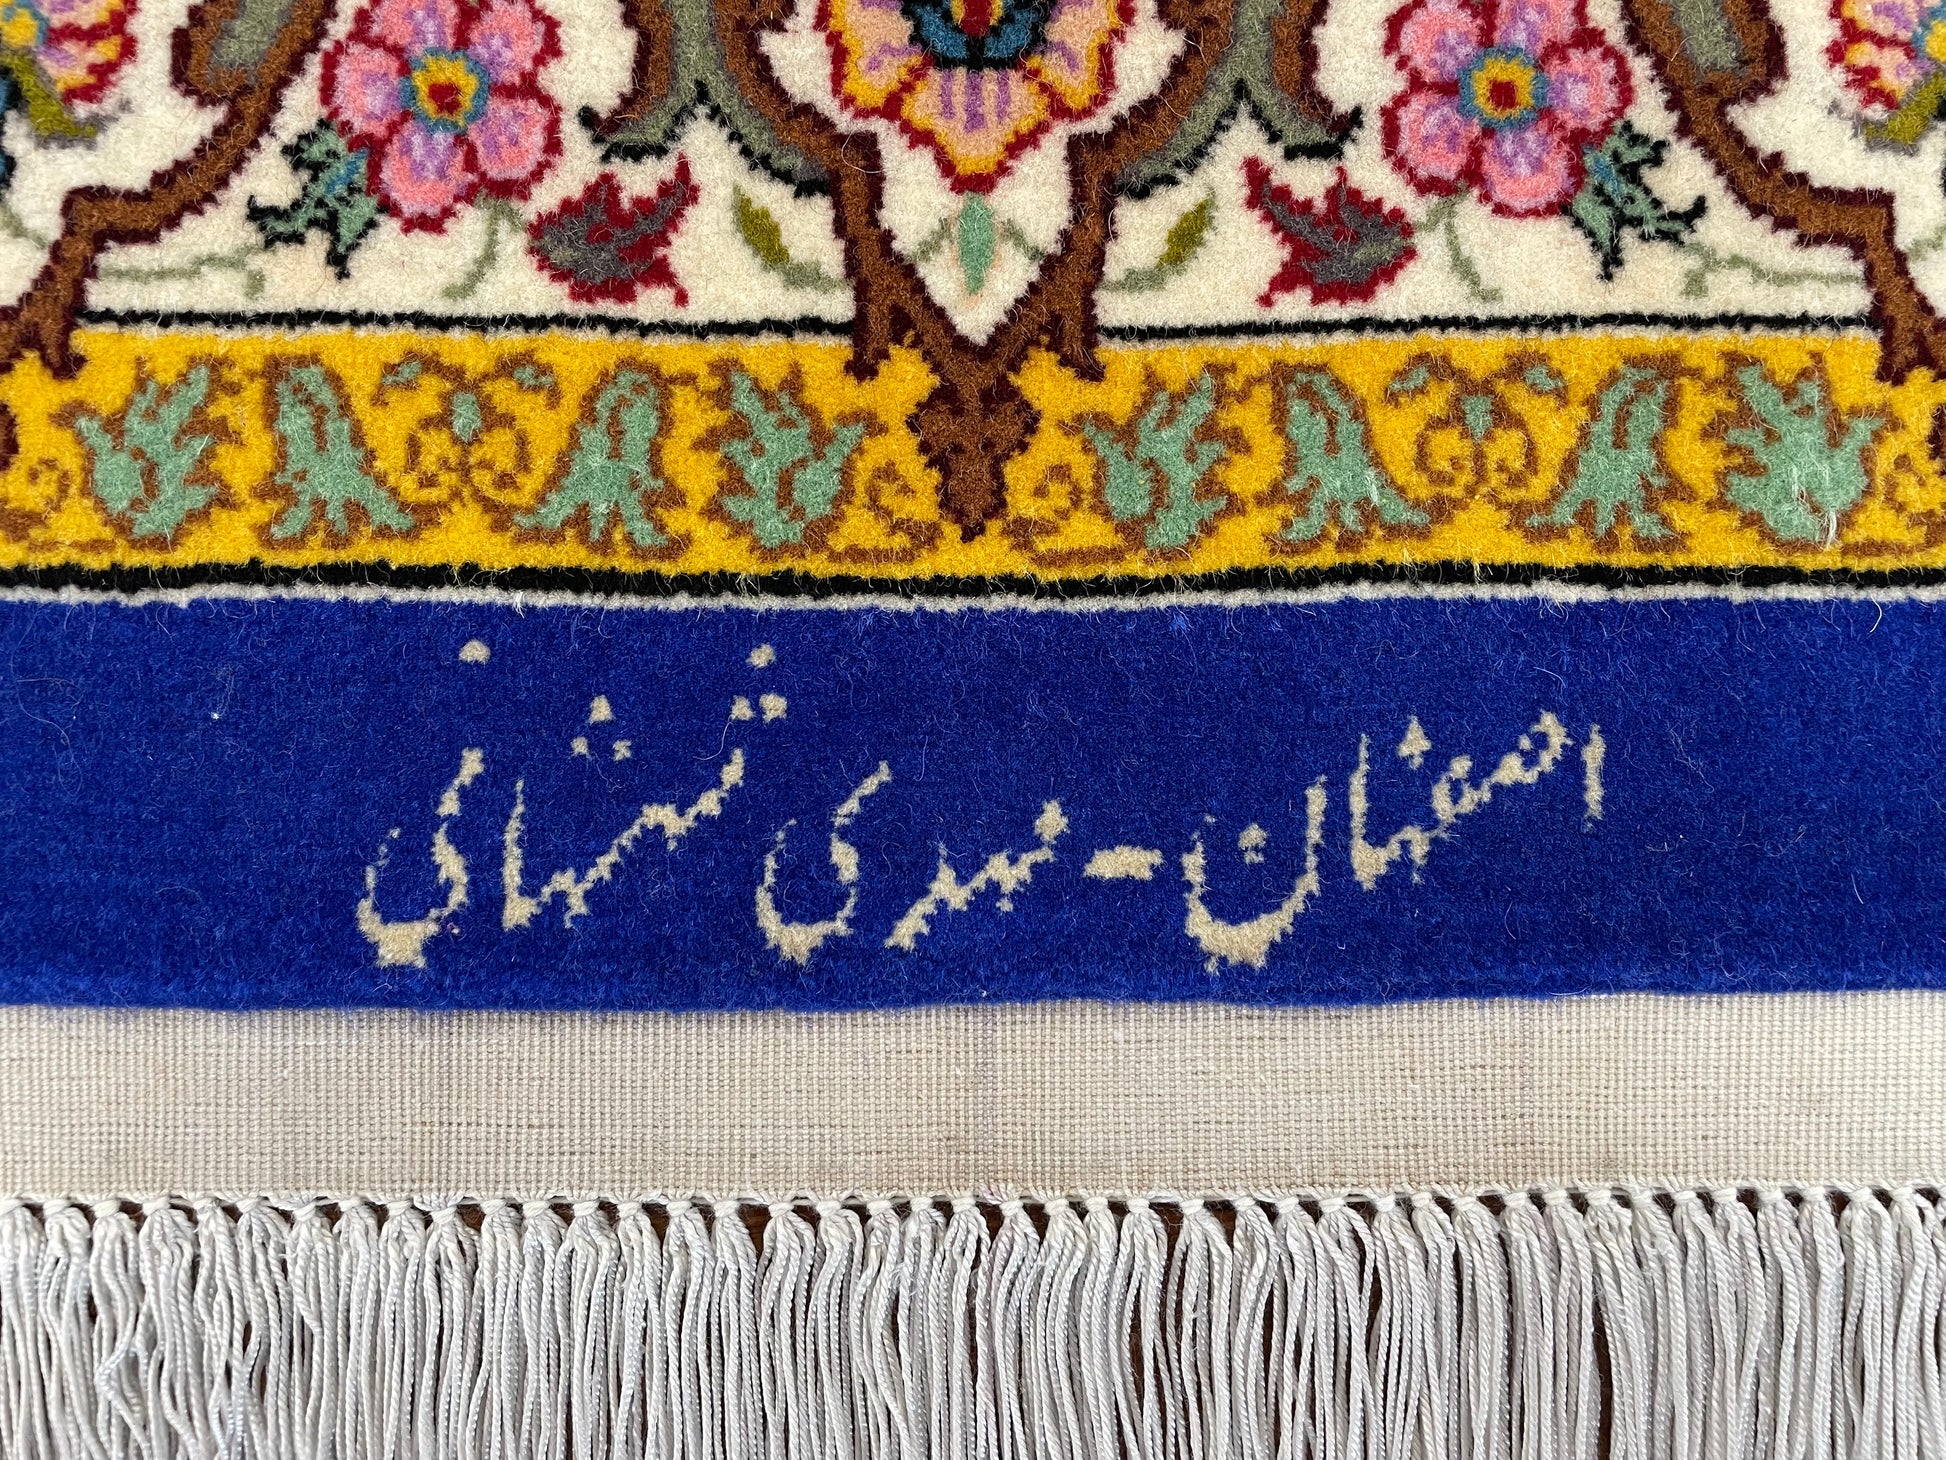 اصفهان - مهدی شهشهانی